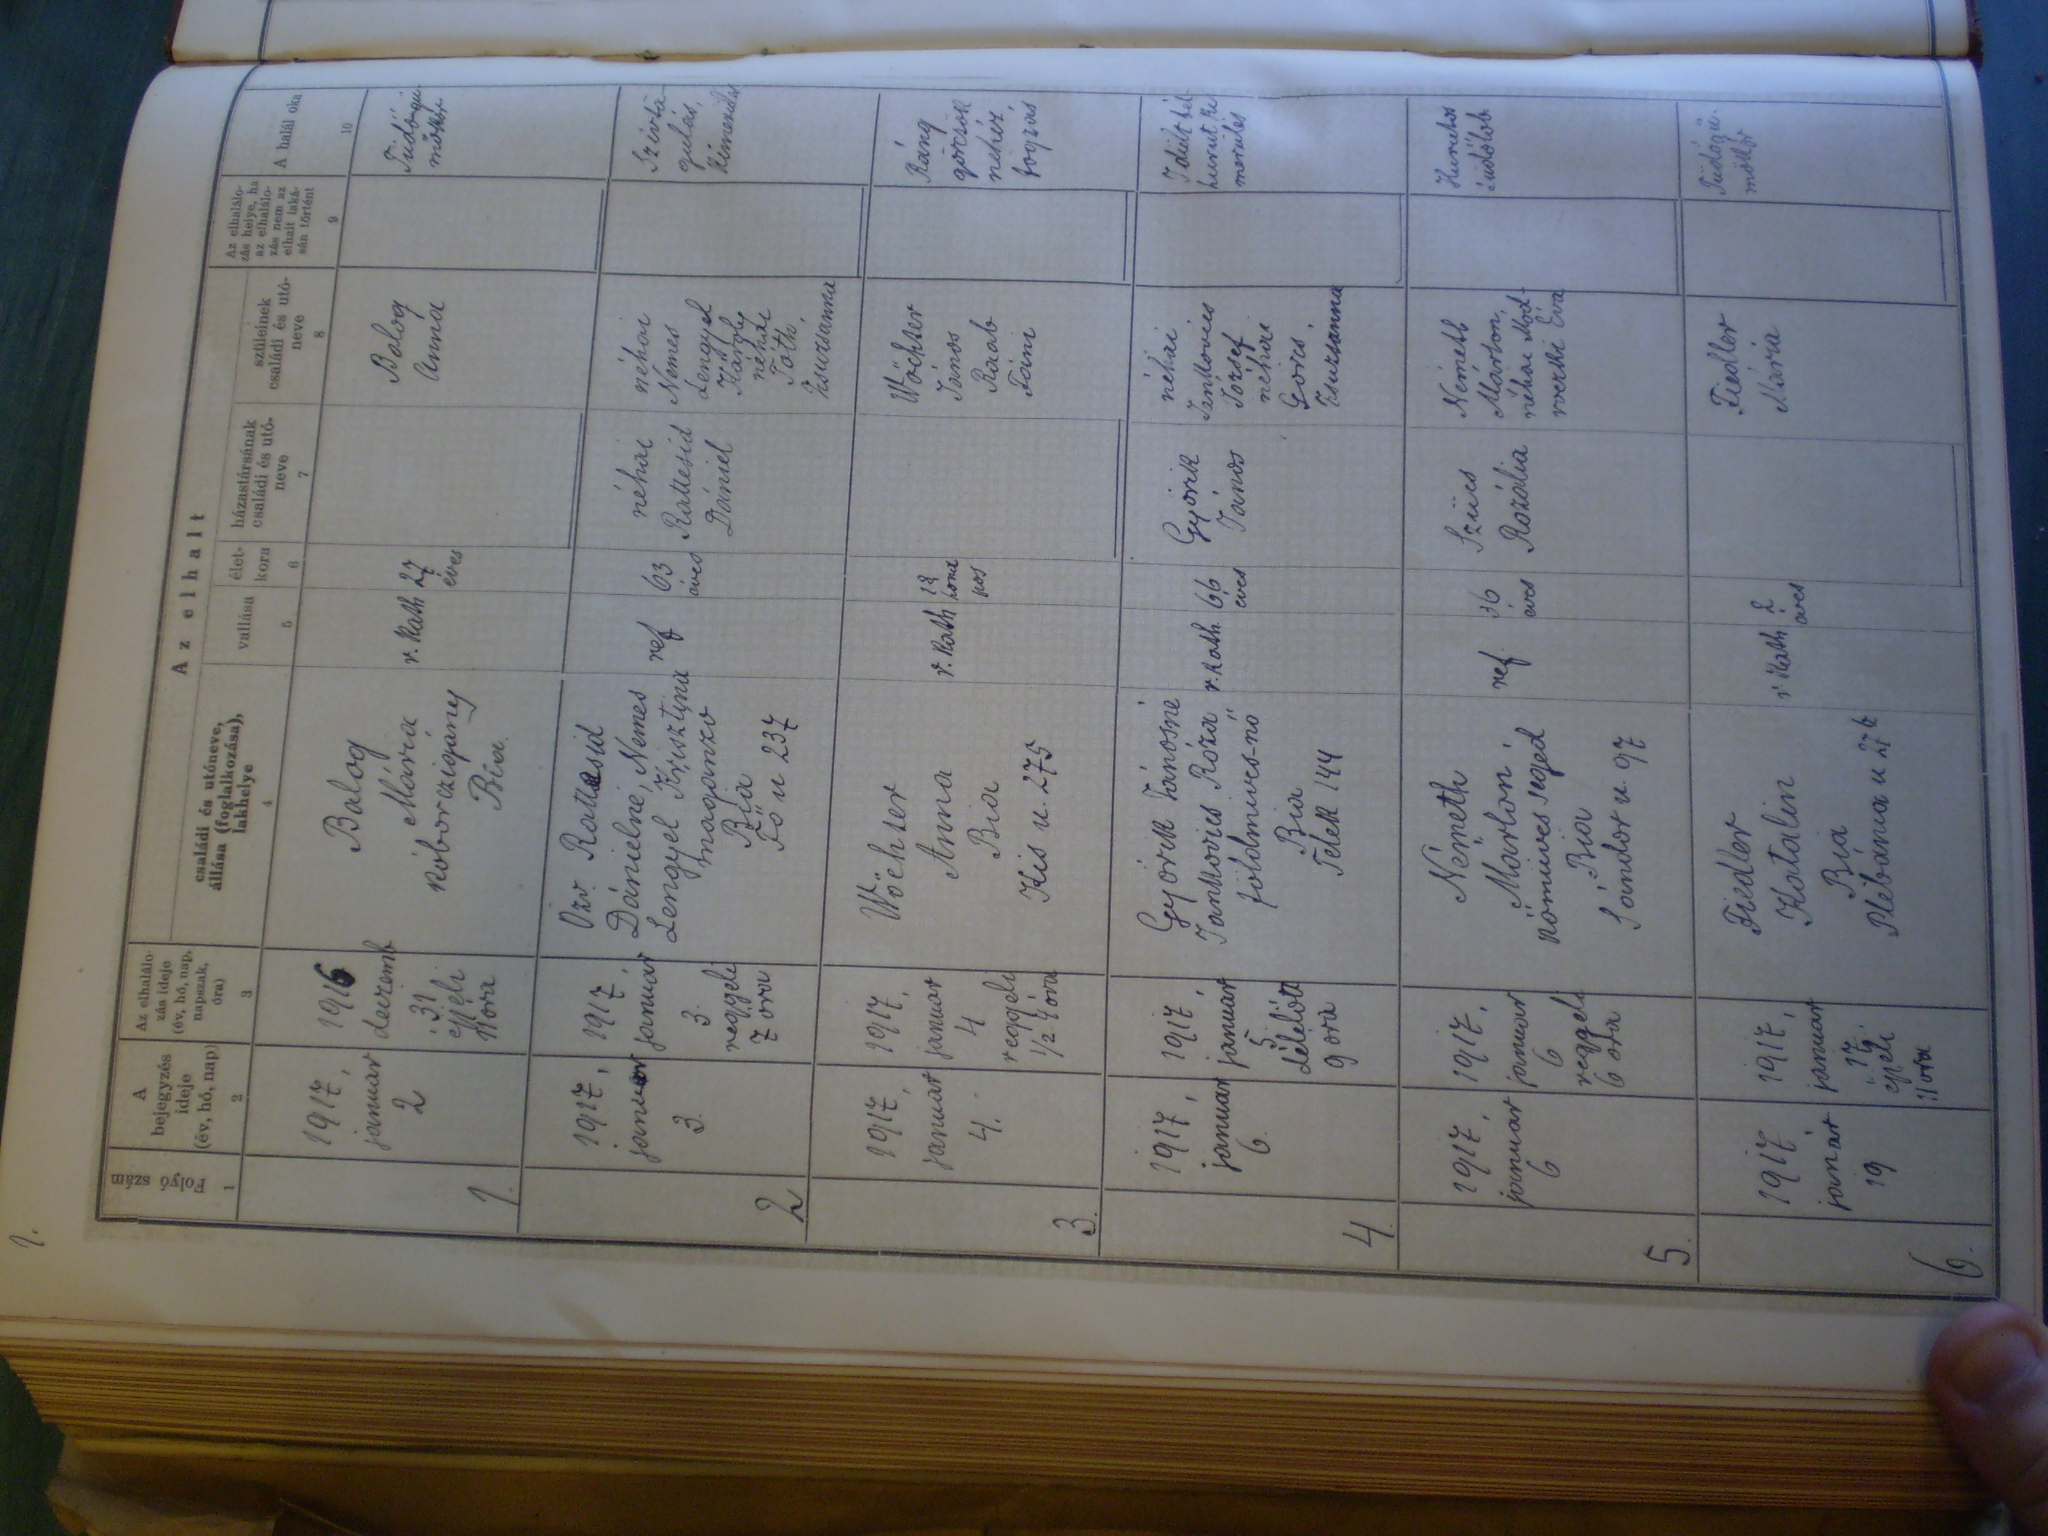 1.
Az elhalt
Folyó szám
A bejegyzés ideje (év, hó, nap)
Az elhalálo-
zás ideje
(év, hó, nap,
napszak,
óra)
családi és utóneve,
állása (foglalkozása),
lakhelye
vallása
élet-
kora
házastársának
családi és utó-
neve
szüleinek
családi és utó-
neve
Az elhalálo-
zás helye, ha
az elhalálo-
zás nem az
elhalt laká-
sán történt
A halál oka
1
2
3
4
5
6
7
8
9
10
1.
1917,
január
2
1916
decemb
31
éjjeli
11 óra
Balog
Mária
kóborczigány
Bia.
r. kath
27
éves
Balog
Anna
Tüdőgü-
mőkór
2
1917,
január
3.
1917,
január
3.
reggeli
7 óra
Özv. Rattasid
Dánielné, Nemes
Lengyel Krisztina
magánzó
Bia
Fő u 237
ref
63
éves
néhai
Dániel
néhai
Nemes
Lengyel
Károly
néhai
Tóth
Zsuzsanna
3.
1917,
január
4.
1917,
január
4
reggeli
1/2 4 óra
Wöchter
Anna
Bia
Kis u. 275
r. kath
18
hóna
pos
Wöchter
János
Raab
Táni
Ráng
görcsök
nehéz
fogzás
4.
1917,
január
6.
1917,
január
5
délelőtt
9 óra
Györik Jánosné
Jankovics Róza
földmives-nő
Bia
Telek 144
r. kath.
66
éves
Györik
János
néhai
Jankovics
József
néhai
Zsuzsanna
5.
1917,
január
6
1917,
január
6
reggeli
6 óra
Németh
Márton
kőmives segéd
Bia
Sándor u. 97
ref.
36
éves
Szücs
Rozália
Németh
Márton,
néhai
Éva
6.
1917
január
19
1917,
január
17
éjjeli
11 óra
Fiedler
Katalin
Bia
Plébánia u 276
r kath
2
éves
Fiedler
Mária
Tüdőgü-
mőkór